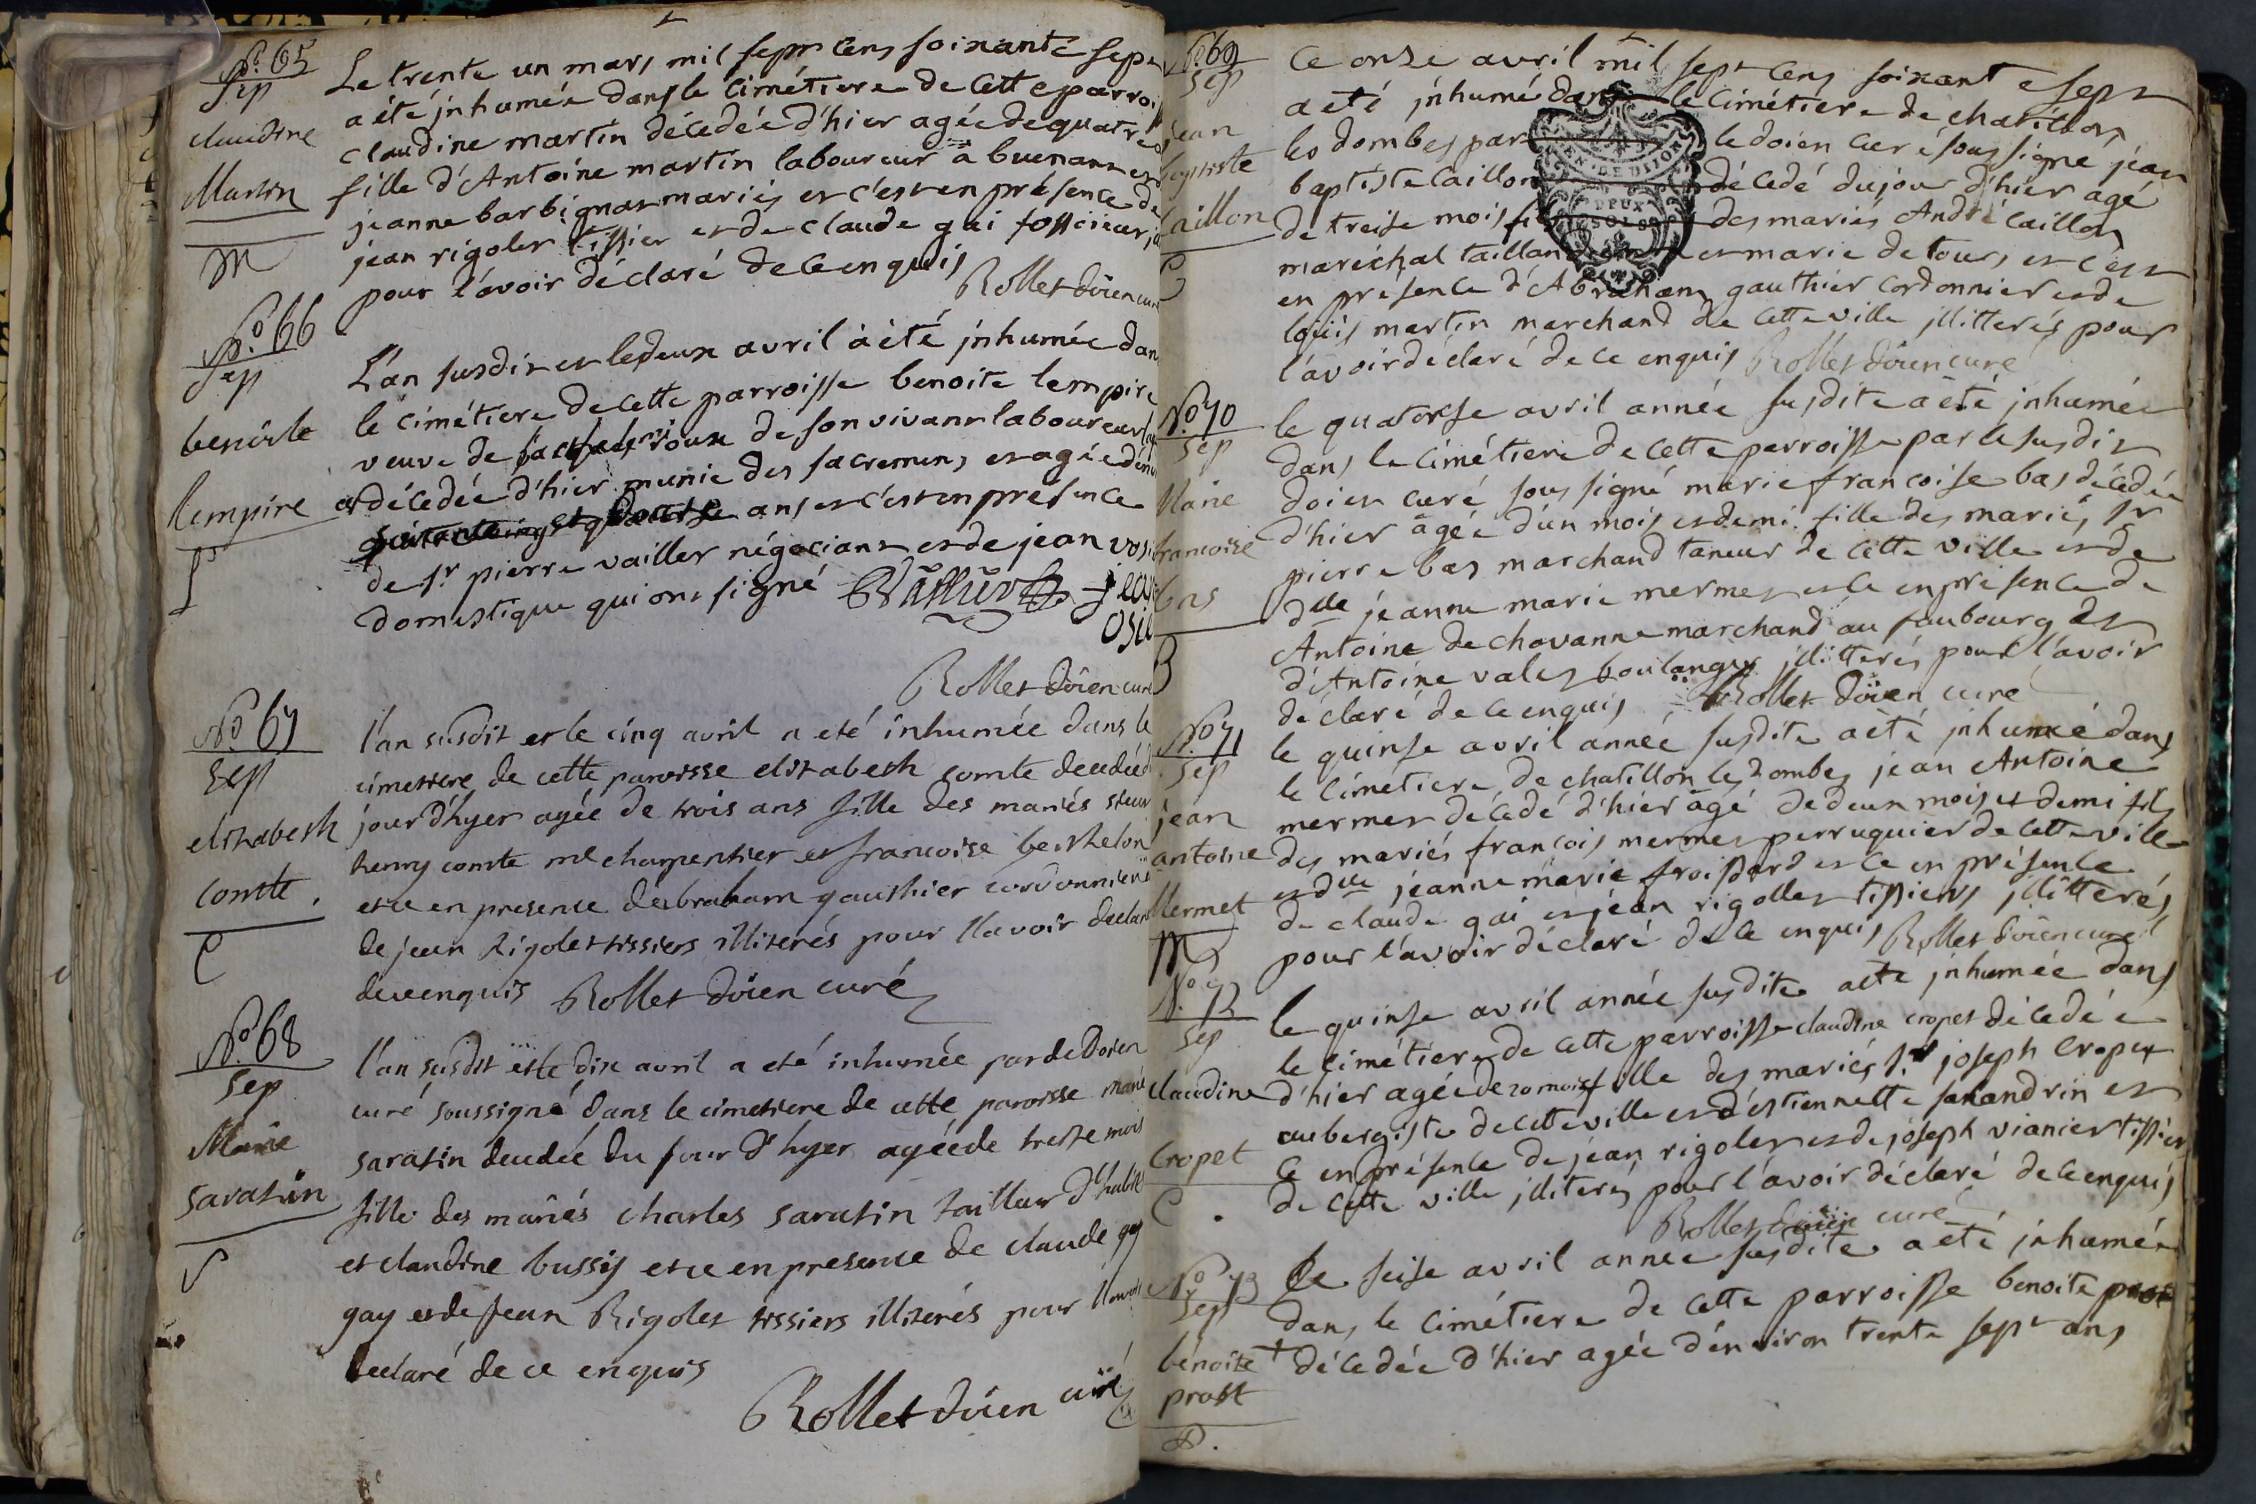 No. 65
Sep
claudine
Martin
M
Le trente un mars mil sept cens soixante sept
a été jnhumée dans le cimétiere de cette parrois
claudine martin décedée d'hier agée de quatre
fille d'Antoine martin laboureur à buenans et d
jeanne barbignat mariés et c'est en présence de
jean rigolet tissier et de claude gai fossieur
pour l'avoir déclaré de ce enquis
Rollet doïen curé
No. 66
Sep
benoite
lempire
L
L'an susdit et le deux avril à été jnhumée dan
le cimétiere de cette parroisse benoite lempire
veuve de roux de son vivant laboureur
décedée d'hier munie des sacremens et agée d'en
ans et c'est en présence
de sr pierre vailler négociant et de jean vosi
domestique qui ont signé
Rollet doïen curé
No. 67
Sep
elizabeth
comte
C
l'an susdit et le cinq avril a eté inhumée dans le
cimettiere de cette paroisse elizabeth comte decedée
jour d'hyer agée de trois ans fille des mariés sieur
henry comte me charpentier et francoise berthelon
et ce en presence d'abraham gauthier cordonnier
de jean Rigolet tissiers illiterés pour l'avoir declaré
de ce enquis Rollet doïen curé
No. 68
Sep
Marie
saratin
S
l'an susdit et le dix avril a eté inhumée par le Doïen
curé soussigné dans le cimettiere de cette paroisse marie
saratin decedée du jour d'hyer agée de treize mois
fille des mariés charles saratin tailleur d'habits
et claudine bussiy et ce en presence de claude gay
gay et de jean Rigolet tissiers illiterés pour l'avoir
declaré de ce enquis
Rollet doïen curé
No. 69
Sep
jean
baptiste
caillon
C
Ce onze avril mil sept cens soixante sept
a eté jnhumé dans le cimétiere de chatillon
les dombes par le doïen curé soussigné jean
baptiste caillon décedé du jour d'hier agé
de treise mois fils des mariés André caillon
maréchal tailland et marie de tours et c'est
en présence d'Abraham gauthier cordonnier et de
loüis martin marchand de cette ville jllitterés pour
l'avoir déclaré de ce enquis Rollet doïen curé
No. 70
Sep
Marie
francoise
bas
B
le quatorse avril année susdite a été jnhumée
dans le cimétiere de cette parroisse par le susdit
doïen curé sous signé marie francoise bas décedée
d'hier agée d'un mois et demi fille des mariés sr
pierre bas marchand taneur de cette ville et de
dlle jeanne marie mermet et ce en présence de
Antoine de chavanne marchand au faubourg et
d'Antoine valet boulanger jllitterés pour l'avoir
déclaré de ce enquis Rollet doïen curé
No. 71
Sep
jean
antoine
Mermet
M
le quinse avril année susdite a eté jnhumé dans
le cimétiere de chatillon les dombes jean Antoine
mermet décedé d'hier âgé de deux mois et demi fils
des mariés françois mermet perruquier de cette ville
et dlle jeanne marie froissard et ce en présence
de claude gai et jean rigollet tissiers jllitterés
pour l'avoir déclaré de ce enquis Rollet doïen curé
No. 72
Sep
claudine
Cropet
C
le quinse avril année susdite a eté jnhumée dans
le cimétiere de cette parroisse claudine cropet décedée
d'hier agée de 20 mois fille des mariés sr joseph cropet
aubergiste de cette ville et d'éstiennette et
ce en présence de jean rigolet et de joseph vianier tissier
de cette ville jlliterés pour l'avoir déclaré de ce enquis
Rollet doïen curé
No. 73
Sep
benoite
prost
P.
Le seise avril annee susdite a eté jnhumée
dans le cimétiere de cette parroisse benoite prost
décedée d'hier agée d'environ trente sept ans